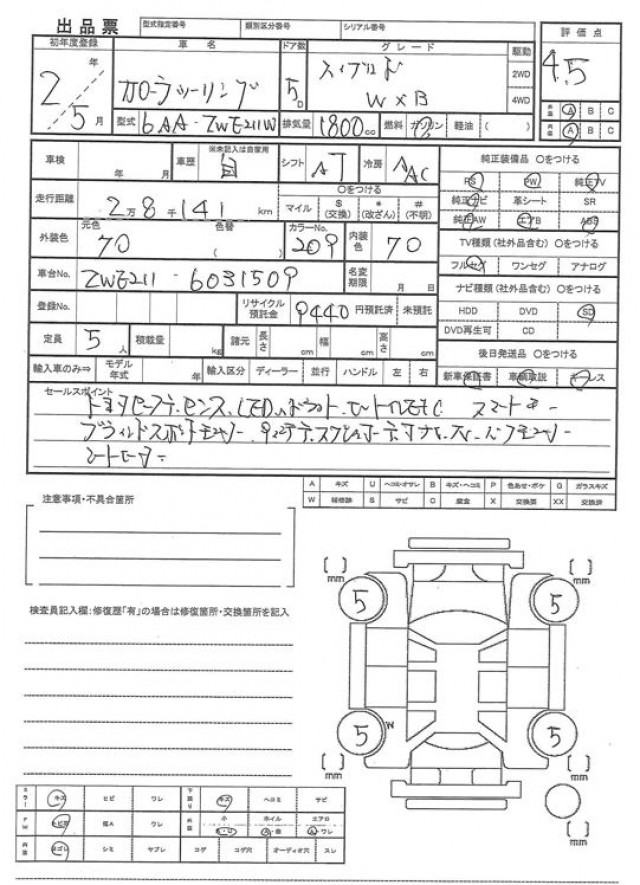 出品票 型式指定番号 類別区分番号 シリアル番号
初年度登録 車名 ドア数 グレード 駆動 評価点
2年/5月 カローラツーリング 5D ハイブリッド WXB 2WD 4WD 4.5
型式 6AA-ZWE211W 排気量 1800cc 燃料 ガソリン 軽油 ( )
外装 A B C
内装 A B C
車検 年 月 車歴 ※未記入は自家用 自 シフト AT 冷房 AAC
純正装備品 ○をつける
PS PW 純正TV
純正ナビ 革シート SR
純正AW エアB ABS
走行距離 2万8千141km ○をつける マイル $(交換) *(改ざん) #(不明)
外装色 元色 70 色替 ( ) カラーNo. 209 内装色 70
TV種類(社外品含む) ○をつける
フルセグ ワンセグ アナログ
車台No. ZWE211-6031509 名変期限 月 日
ナビ種類(社外品含む) ○をつける
HDD DVD SD
DVD再生可 CD
登録No. リサイクル預託金 9440円預託済 未預託
定員 5人 積載量 kg 諸元 長さ cm 幅 cm 高さ cm
後日発送品 ○をつける
新車保証書 車輌取説 キーレス
輸入車のみ⇒ モデル年式 年 輸入区分 ディーラー 並行 ハンドル 左 右
セールスポイント
トヨタセーフティセンス LEDヘッドライト ビルトインETC スマートキー
ブラインドスポットモニター
シートヒーター
A キズ U ヘコミ・オサレ B キズ・ヘコミ P 色あせ・ボケ G ガラスキズ
W 補修跡 S サビ C 腐食 X 交換要 XX 交換済
注意事項・不具合箇所
検査員記入欄:修復歴「有」の場合は修復箇所・交換箇所を記入
[ ]mm [ ]mm
5 5
5 W 5
[ ]mm [ ]mm
ミラー キズ ヒビ ワレ 下廻り キズ ヘコミ サビ
FW ヒビ 小 ホイル エアロ
内装 ヨゴレ シミ ヤブレ コゲ コゲ穴 オーディオ穴 スレ